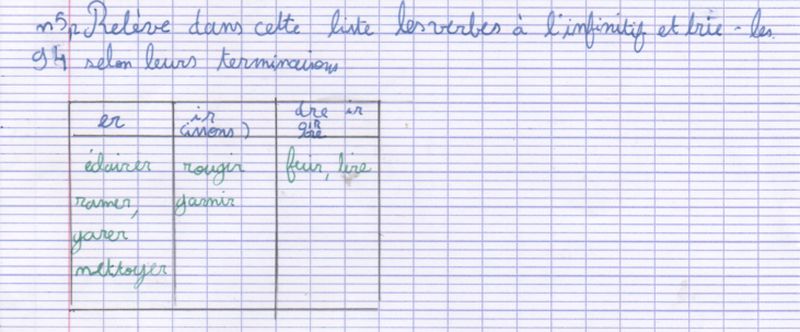 n°5p Relève dans cette liste les verbes à l'infinitif et trie-les
94 selon leurs terminaisons
er
ir
(issons)
dre ir
oire
éclairer rougir fuir, lire
ramer, garnir
garer
nettoyer